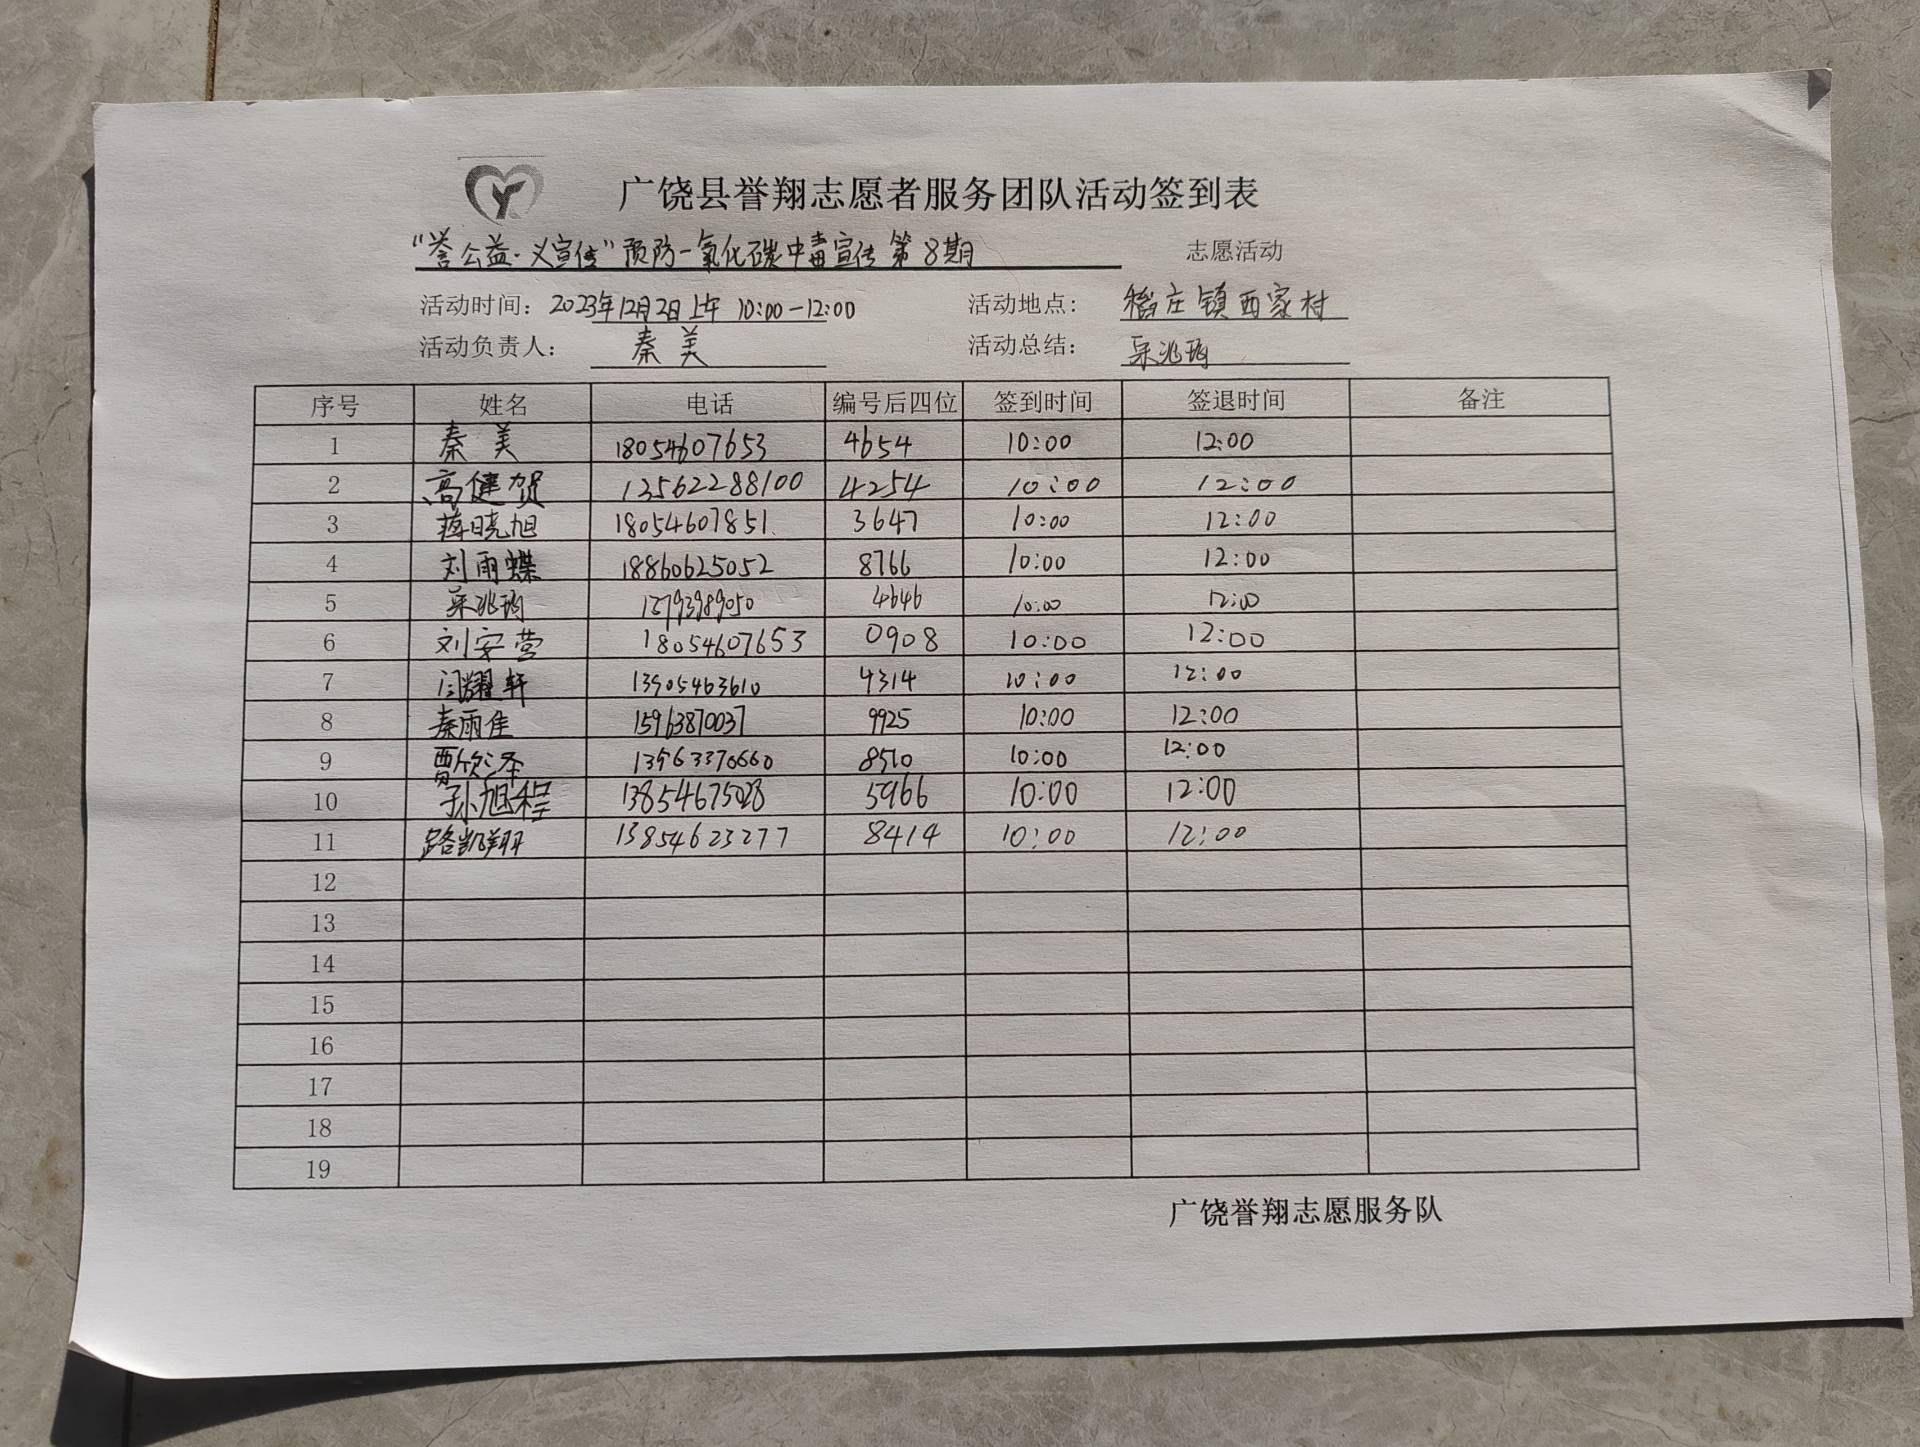 广饶县誉翔志愿者服务团队活动签到表
“誉公益·义宣传”预防一氧化碳中毒宣传第8期 志愿活动
活动时间：2023年12月2日上午 10:00-12:00 活动地点：稻庄镇西家村
活动负责人：秦美 活动总结：
序号 姓名 电话 编号后四位 签到时间 签退时间 备注
1 秦美 18054607653 4654 10:00 12:00
2 高健贺 13562288100 4254 10:00 12:00
3 蒋晓旭 18054607851 3647 10:00 12:00
4 刘雨蝶 18860625052 8766 10:00 12:00
5 4646 10:00 12:00
6 刘安营 18054607653 0908 10:00 12:00
7 闫耀轩 13905463610 4314 10:00 12:00
8 秦雨佳 15963870037 9925 10:00 12:00
9 贾欣泽 13963370660 8510 10:00 12:00
10 孙旭程 13854675028 5966 10:00 12:00
11 路凯翔 13854623277 8414 10:00 12:00
12
13
14
15
16
17
18
19
广饶誉翔志愿服务队